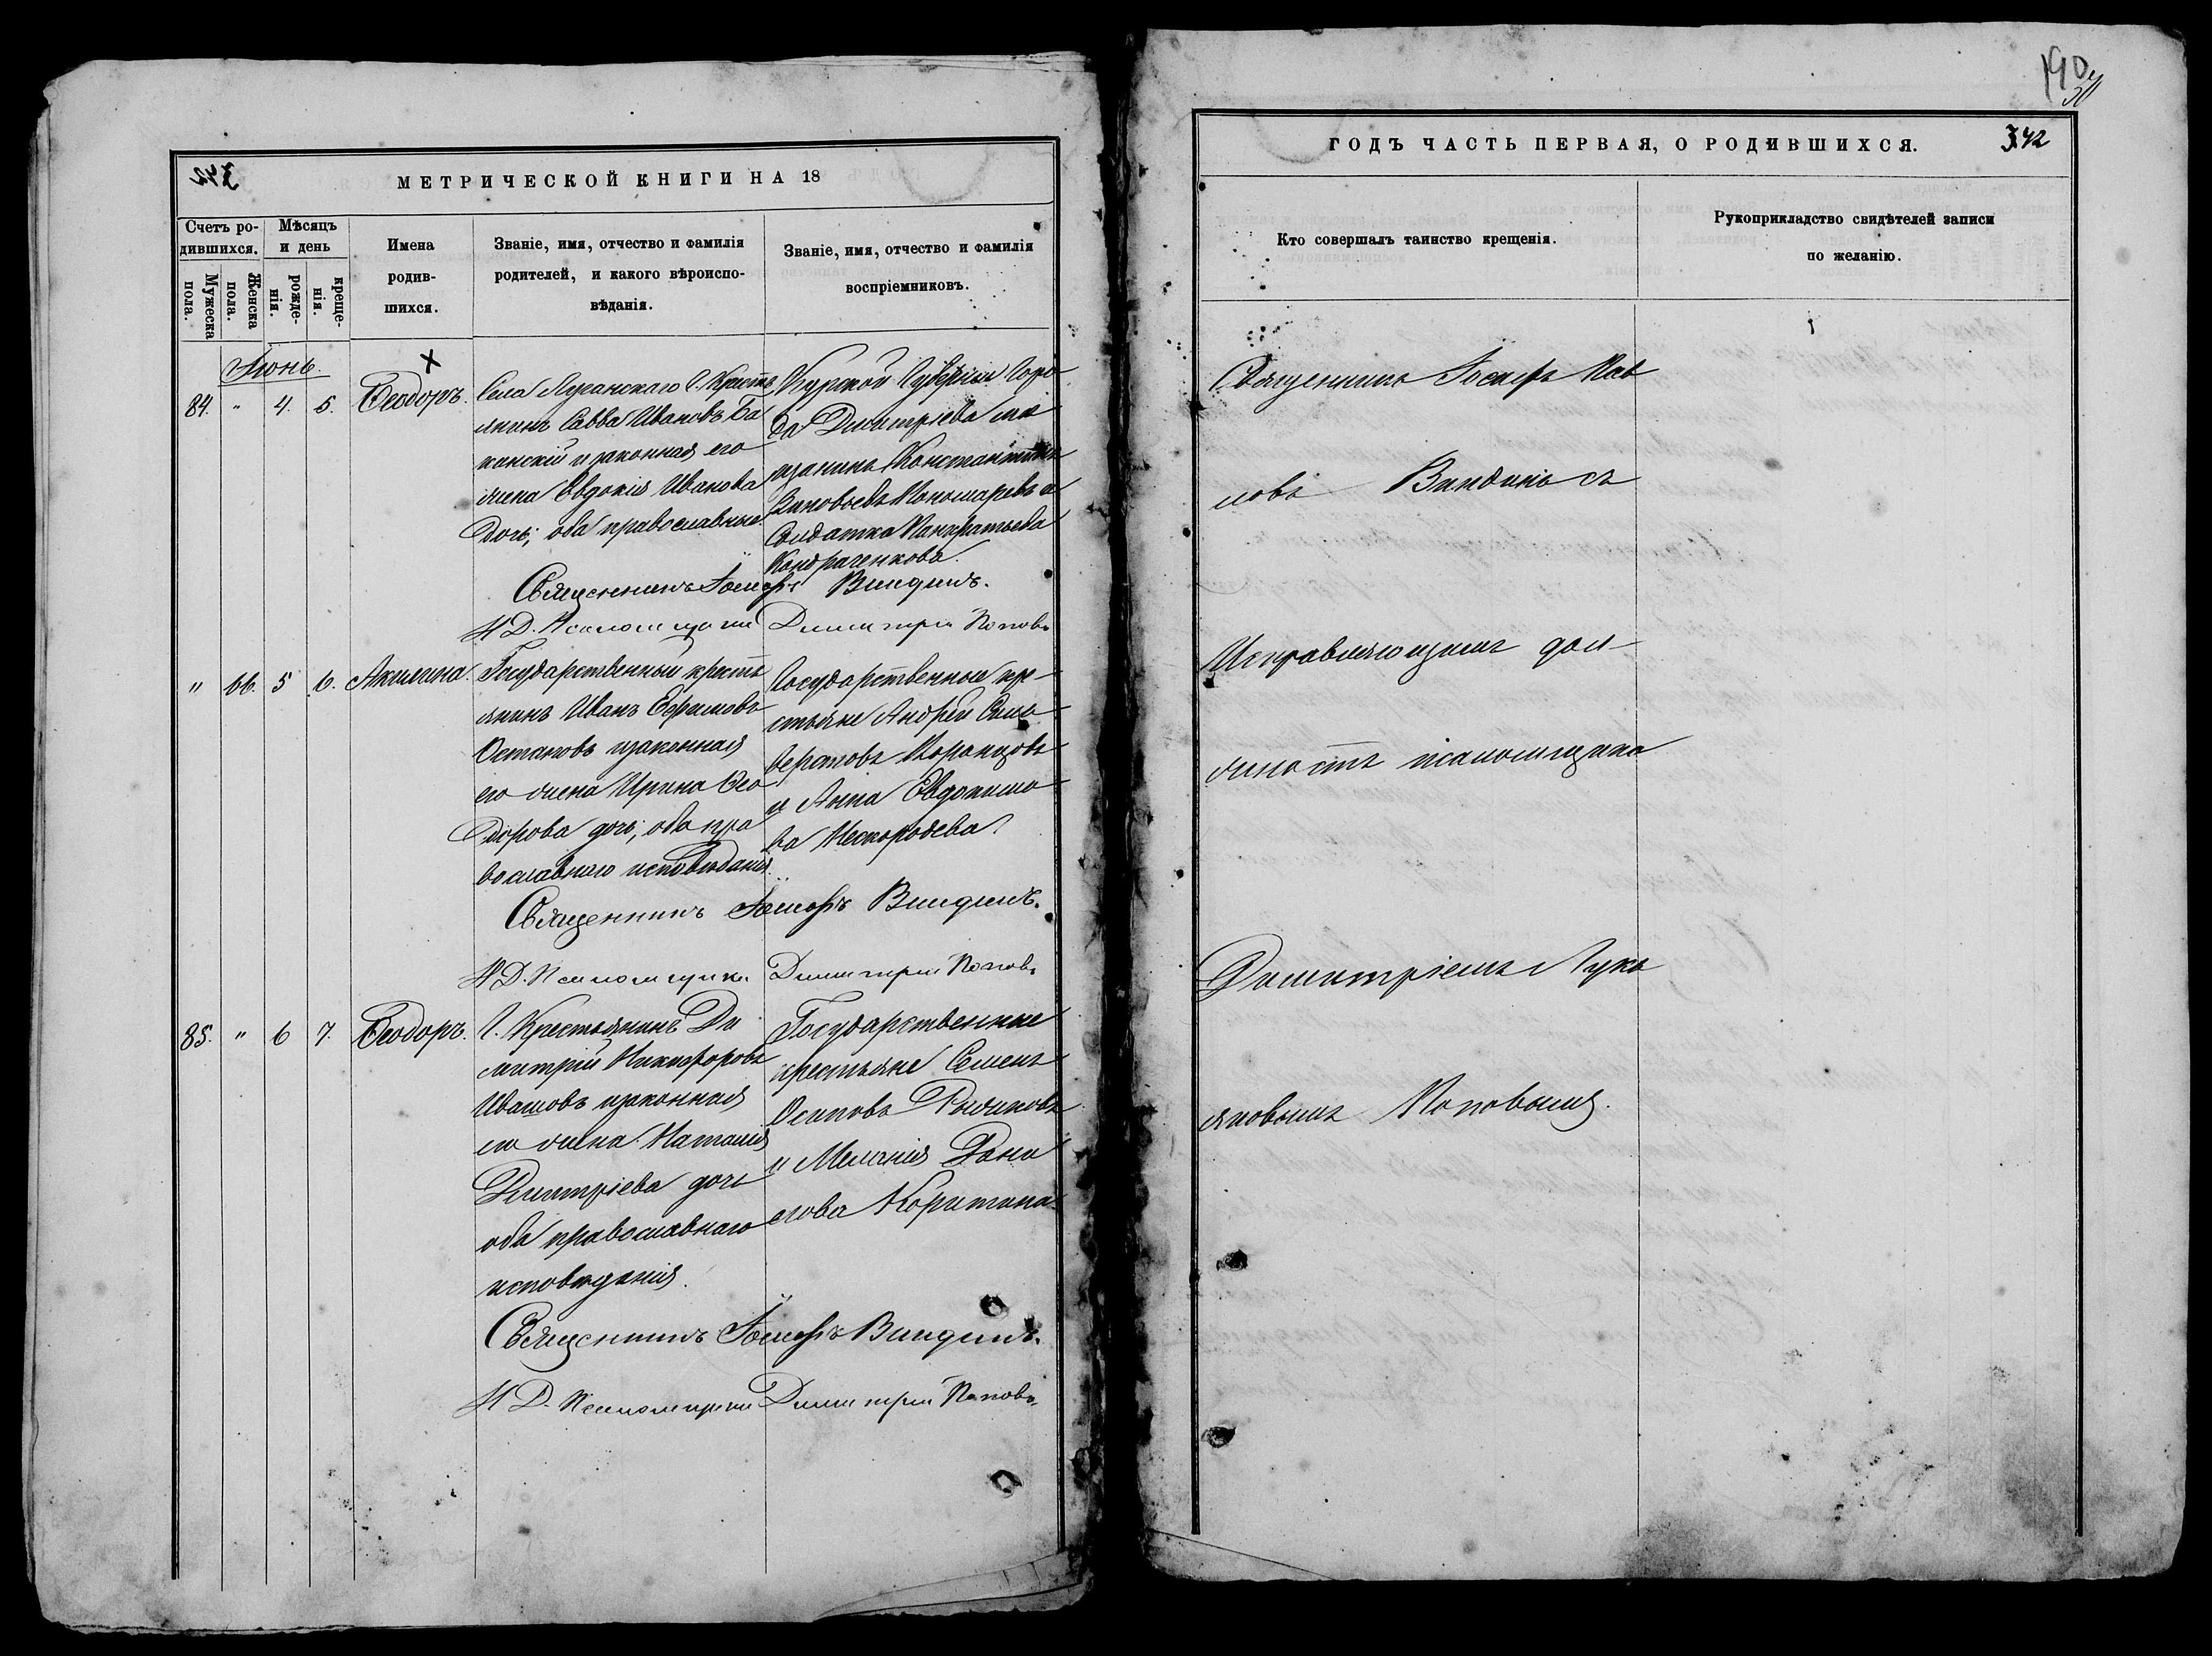 190
342
МЕТРИЧЕСКОЙ КНИГИ НА 18
Счетъ ро-
дившихся.
Мужеска
пола.
Женска
пола.
Мѣсяцъ
и день
рожде-
нія.
креще-
нія.
Имена
родив-
шихся.
Званіе, имя, отчество и фамилія
родителей, и какого вѣроиспо-
вѣданія.
Званіе, имя, отчество и фамилія
воспріемниковъ.
Іюнь.
84. " 4. 5. Ѳеодоръ.
Села Луганскаго Г. Кресть
янинъ Савва Ивановъ Ба
канскій и законная его
жена Евдокія Иванова
дочь; оба православные.
Курской Губерніи Горо
да Димитріева мѣ
щанинъ Константинъ
Зиновьевъ Пономаревъ и
Солдатка Панкратьева
Кондраченкова.
Священникъ Іосифъ Виндинъ.
И Д. Псаломщика Димитрій Поповъ
" 66. 5 6. Акилина.
Государственный кресть
янинъ Иванъ Ефимовъ
Остаповъ и законная
его жена Ирина Ѳео
дорова дочь; оба пра
вославнаго исповѣданія.
Государственные кре-
стьяне Андрей
и Анна Евдокимо
ва
Священникъ Іосифъ Виндинъ.
И Д. Псаломщика Димитрій Поповъ
85. " 6 7. Ѳеодоръ.
Г. Крестьянинъ Ди
митрій Никифоровъ
Ивашовъ и законная
его жена Наталія
Димитріева дочь
оба православнаго
исповѣданія.
Государственные
крестьяне Семенъ
Осиповъ Рычиковъ
и Меланія Дани
лова Коритина.
Священникъ Іосифъ Виндинъ.
И Д. Псаломщика Димитрій Поповъ
ГОДЪ ЧАСТЬ ПЕРВАЯ, О РОДИВШИХСЯ.
342
Кто совершалъ таинство крещенія.
Рукоприкладство свидѣтелей записи
по желанію.
Священникъ Іосифъ Пав
ловъ Виндинъ съ
Исправляющимъ дол-
жность псаломщика
Димитріемъ Лукь
яновымъ Поповымъ.